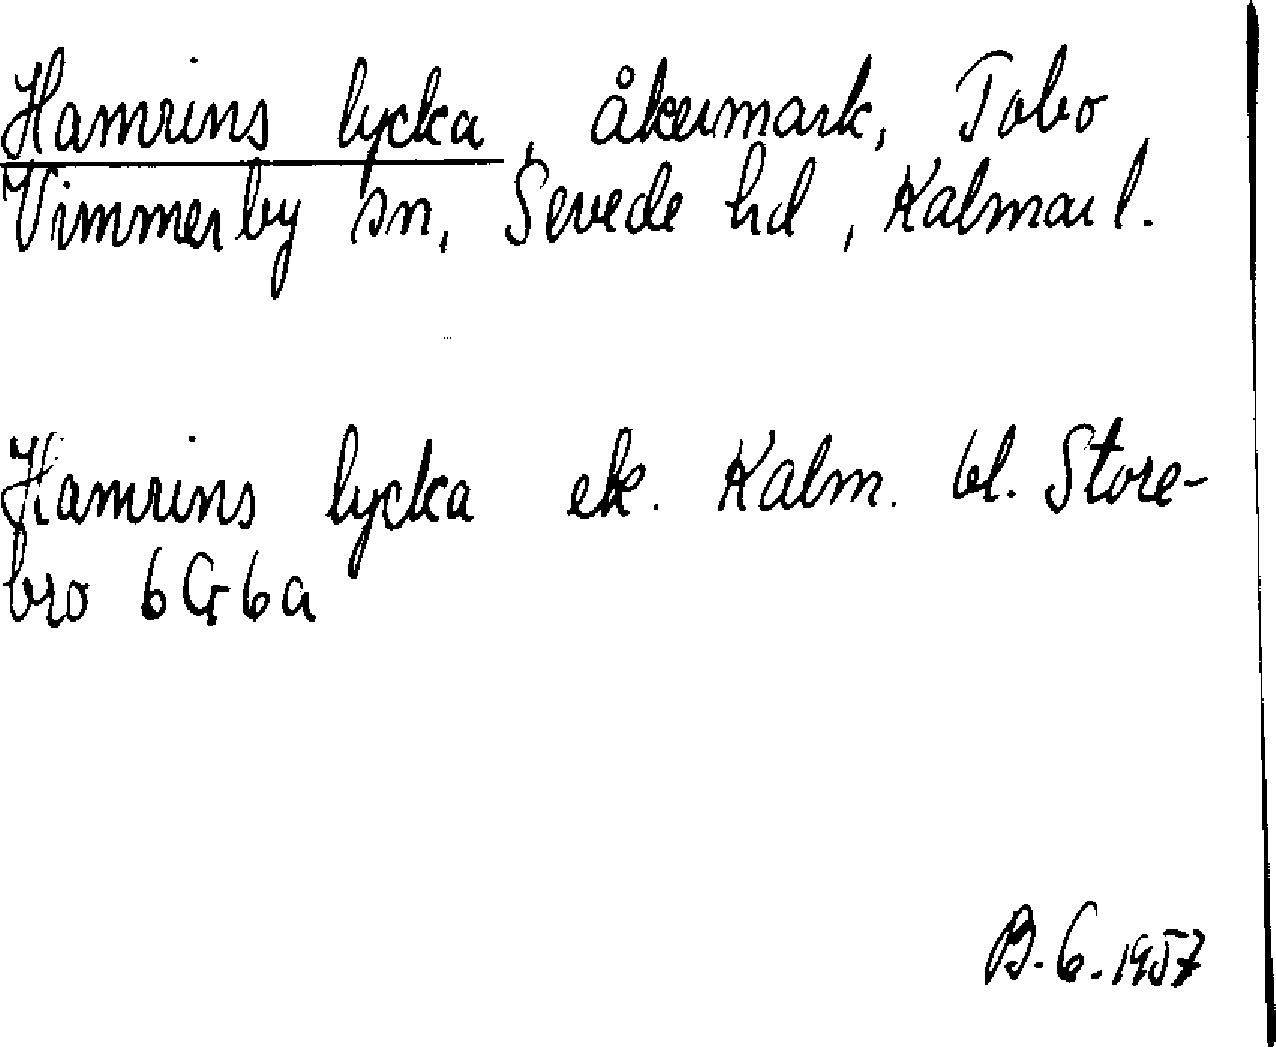 Hamrins lycka, åkermark, Tobo,
Vimmerby sn, Sevede hd, Kalmar l.
Hamrins lycka ek. Kalm. bl. Store-
bro 6G6a
B. G. 1957